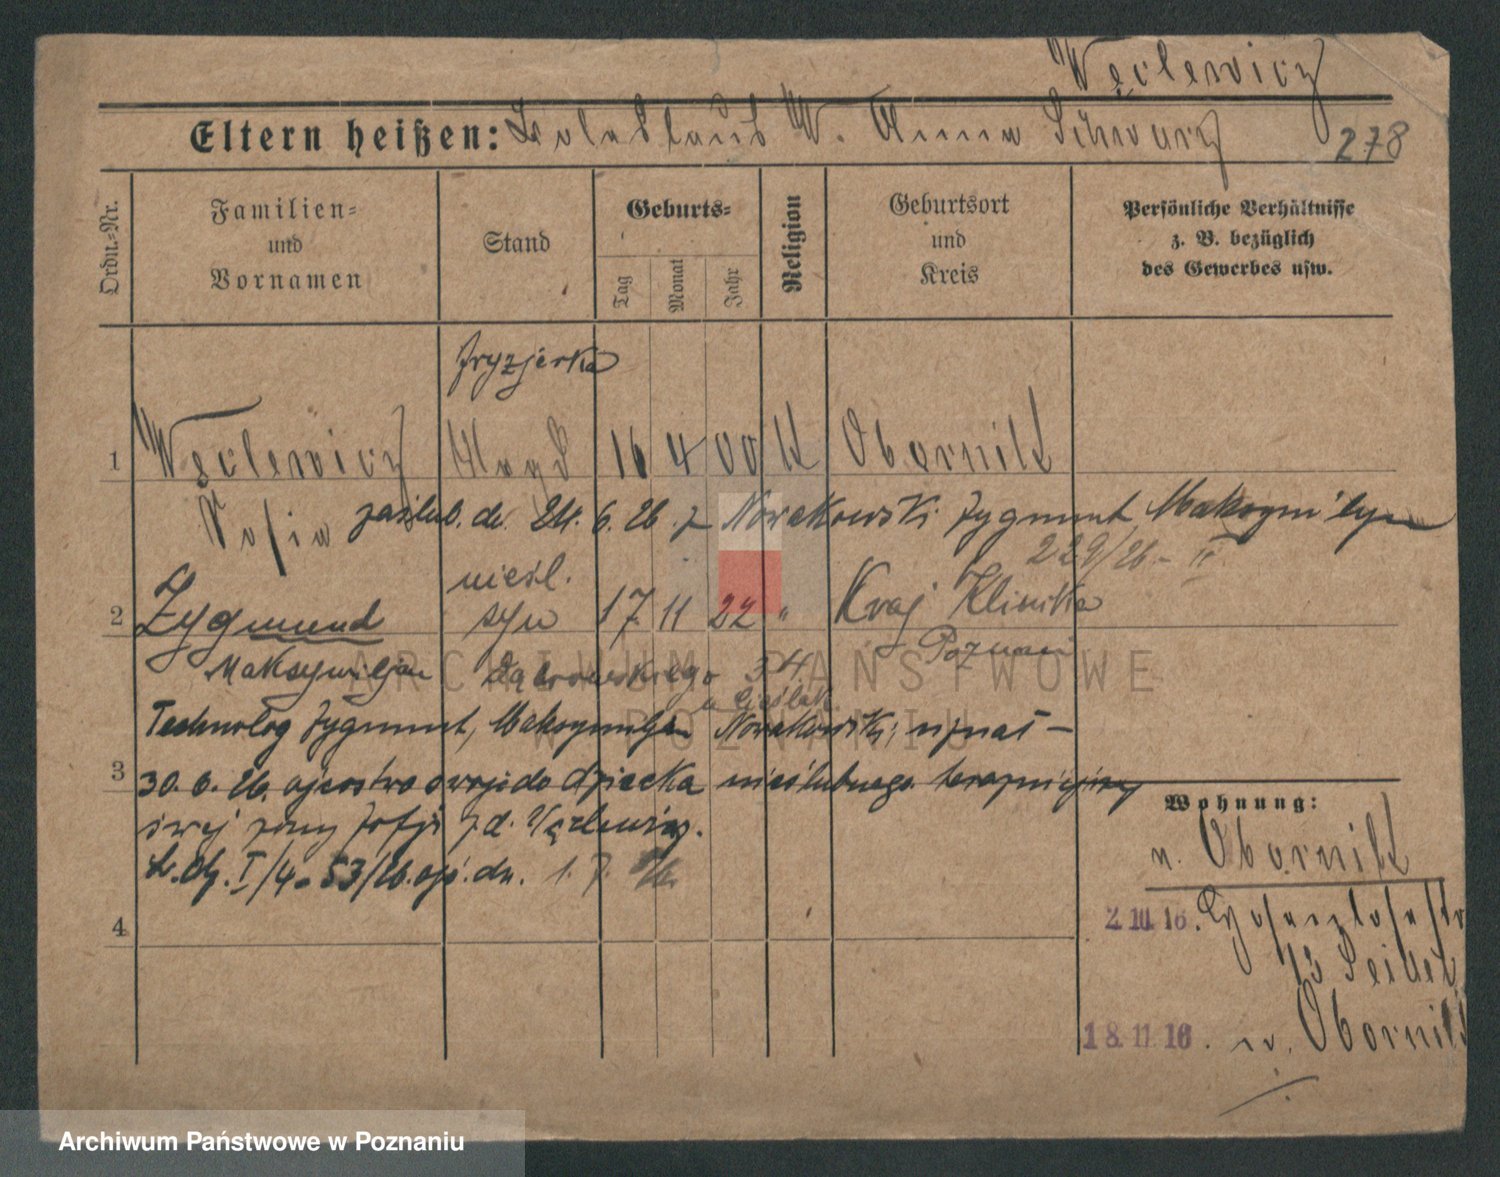 Węclewicz
Eltern heißen: Boleslaus W. Anna Schwarz
278
Ordn.-Nr.
Familien-
und
Vornamen
Stand
Geburts-
Tag
Monat
Jahr
Religion
Geburtsort
und
Kreis
Persönliche Verhältnisse
z. B. bezüglich
des Gewerbes usw.
fryzjerka
1 Węclewicz 16 4 00 k Obornik
Sofia zaślub. dn. 24. 6. 26. z Nowakowski Zygmunt Maksymilyan
229/26 - II
nieśl.
2 Zygmund syn 17. 11 22 " Kraj Klinika
Poznań
Maksymiljan Dąbrowskiego 34
u Cieślak
Technolog Zygmunt, Maksymiljan Nowakowski, uznał -
3 30. 6. 26. ojcostwo swoje do dziecka nieślubnego
swej żony Zofji z d. Węclewicz.
I/4 - 53/26. dn. 1. 7. 26.
4
Wohnung:
n. Obornik
2.10.16.
73 Seidel
18.11.16. n. Obornik
ARCHIWUM PAŃSTWOWE
W POZNANIU
Archiwum Państwowe w Poznaniu